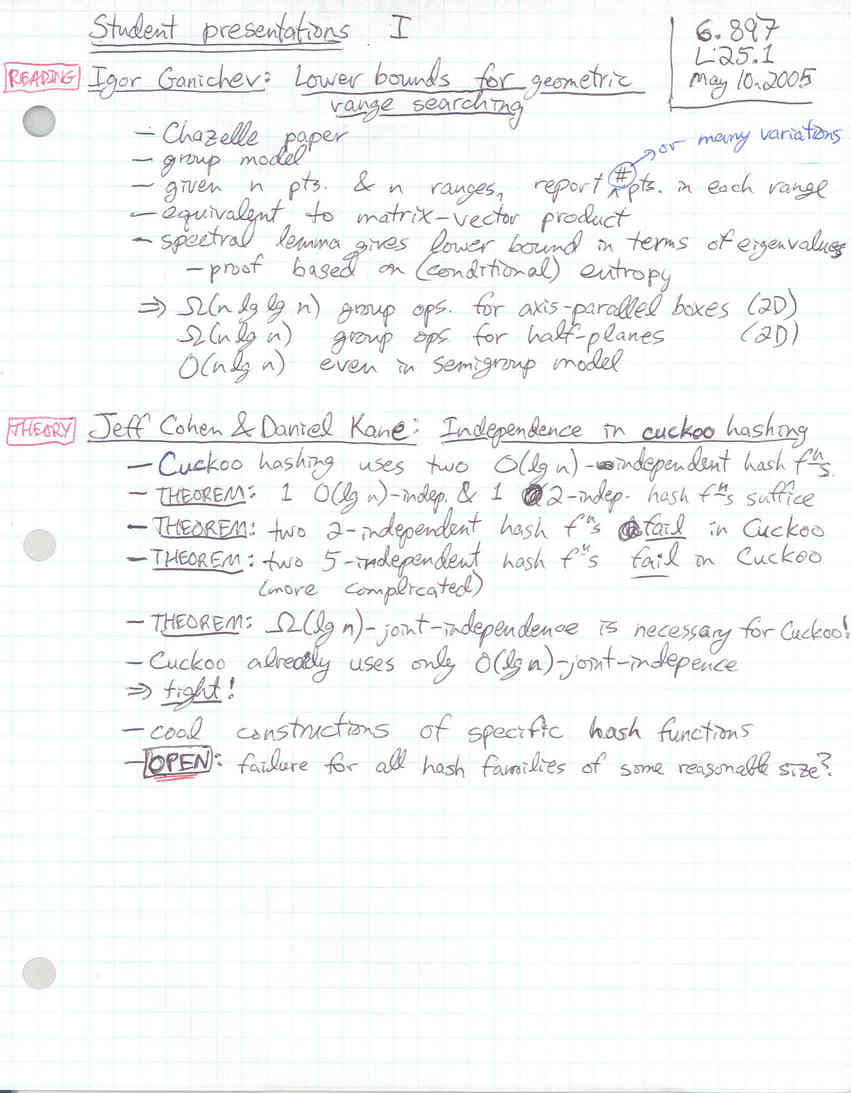 Student presentations I
6.897
L25.1
May 10, 2005
READING Igor Ganichev: Lower bounds for geometric
range searching
– Chazelle paper
– group model
or many variations
– given n pts. & n ranges, report # pts. in each range
– equivalent to matrix-vector product
– spectral lemma gives lower bound in terms of eigenvalues
– proof based on (conditional) entropy
⇒ Ω(n lg lg n) group ops. for axis-parallel boxes (2D)
Ω(n lg n) group ops for half-planes (2D)
O(n lg n) even in semigroup model
THEORY Jeff Cohen & Daniel Kane: Independence in cuckoo hashing
– Cuckoo hashing uses two O(lg n)-independent hash fⁿs.
– THEOREM: 1 O(lg n)-indep. & 1 2-indep. hash fⁿs suffice
– THEOREM: two 2-independent hash fⁿs fail in Cuckoo
– THEOREM: two 5-independent hash fⁿs fail in Cuckoo
(more complicated)
– THEOREM: Ω(lg n)-joint-independence is necessary for Cuckoo!
– Cuckoo already uses only O(lg n)-joint-indepence
⇒ tight!
– cool constructions of specific hash functions
– OPEN: failure for all hash families of some reasonable size?